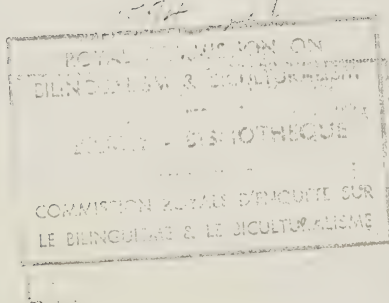 ROYAL COMMISSION ON
BILINGUALISM & BICULTURALISM
LIBRARY - BIBLIOTHEQUE
COMMISSION ROYALE D'ENQUETE SUR
LE BILINGUISME & LE BICULTURALISME